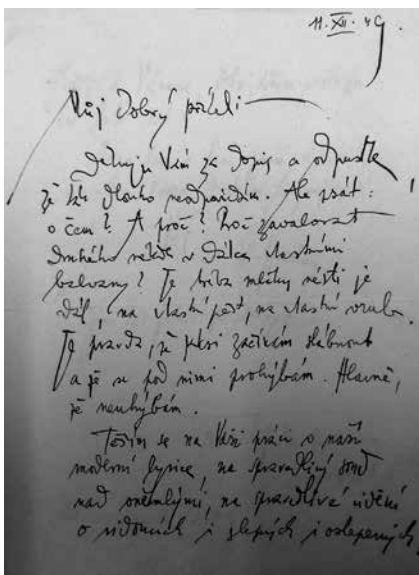 11. XII. 49
Můj dobrý příteli
Děkuji Vám za dopis a odpusťte
že tak dlouho neodpovídám. Ale psát:
o čem? A proč? Proč zavalovat
druhého někde v dálce vlastními
balvany? Je třeba mlčky nésti je
dál, na vlastní pěst, na vlastní
Je pravda, že jaksi začínám slábnout
a že se pod nimi prohýbám. Hlavně,
že neuhýbám.
Těším se na Vaši práci o naší
moderní lyrice, na spravedlivý soud
nad oněmlými, na spravedlivé vidění
o vidoucích i slepých i oslepených